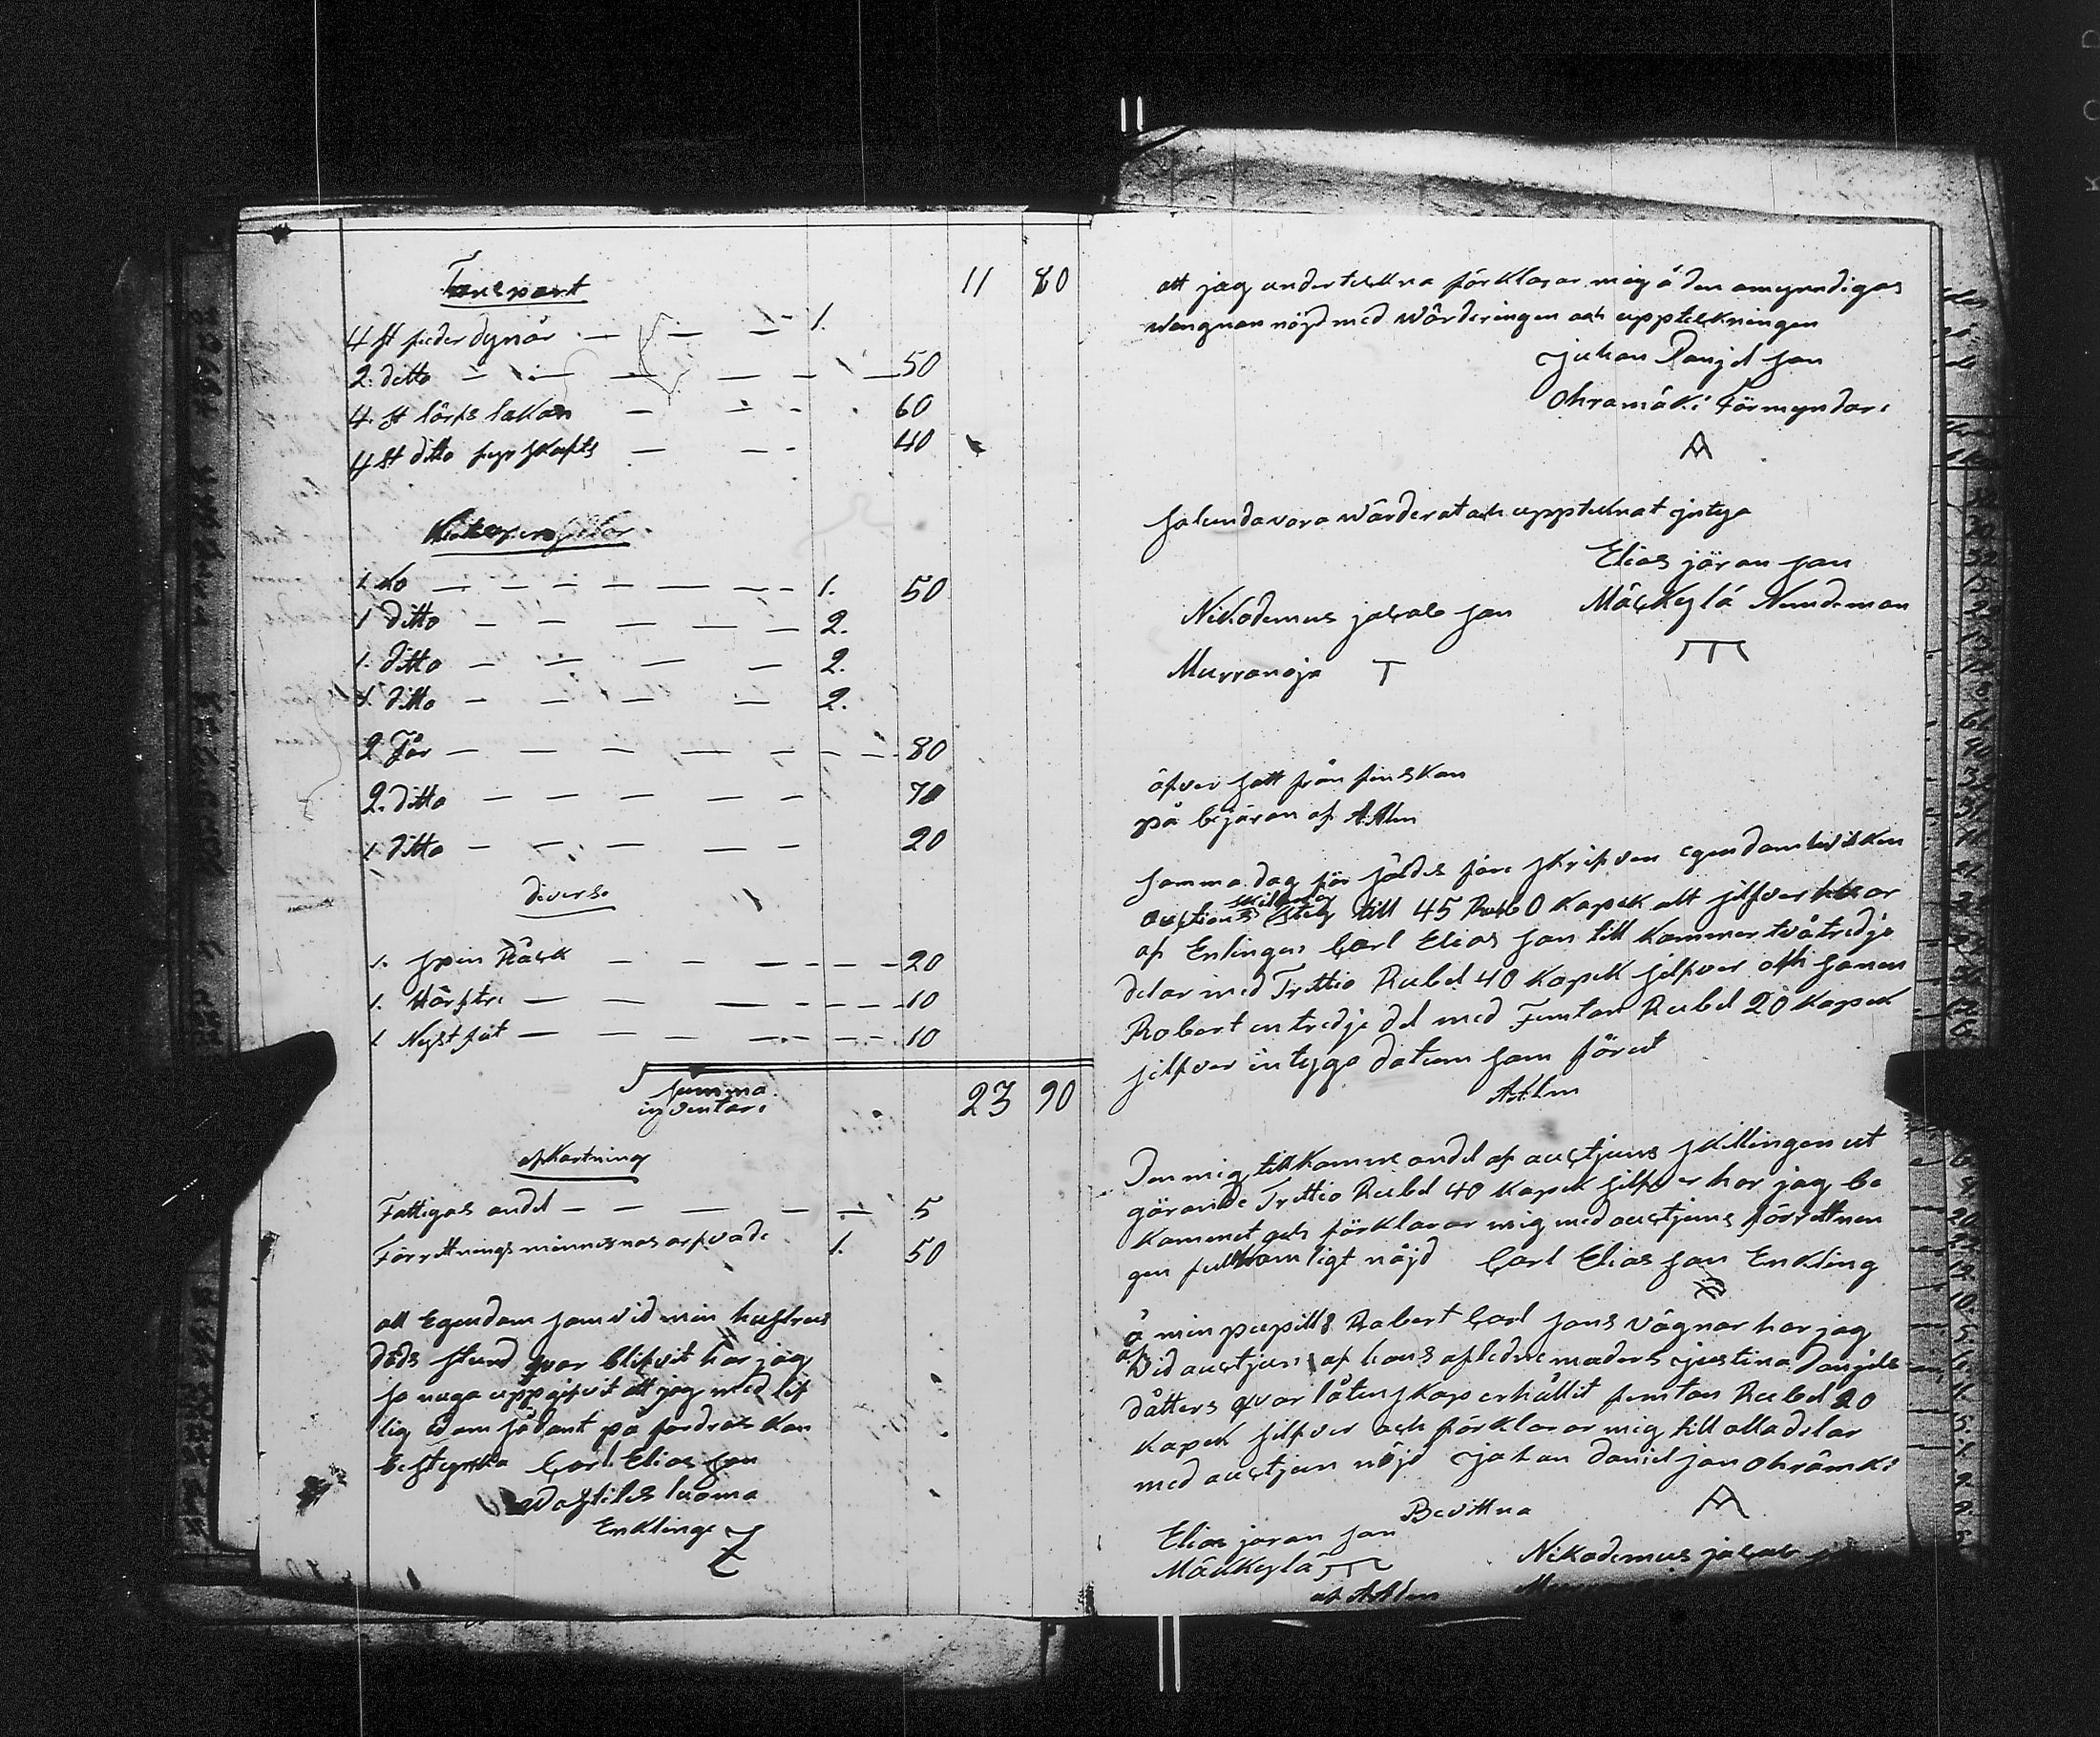 Transport 11 80
4 st fieder dynor — — — 1.
2. ditto — — — — — 50
4. st lärfs lakan — — - 60
4 st ditto fyr skafts — — - 40
1 ko — — — — — — 1. 50
1 ditto — — — — — 2.
1. ditto — — — — 2.
1. ditto — — — — 2.
2 Får — — — — — — 80
2. ditto — — — — — 70
1 ditto — — — — — 20
diverse
1. spin Råck — — — — — 20
1. Härftre — — — — — 10
1 Nystfåt — — — — — 10
Summa
inventari 23 90
afkortning
Fattigas andel — — — — — 5
Förrettnings männernas arfvode 1. 50
all Egendom som vid min hustrus
döds stund qvar blifvit har jag
så nuga uppgifvit att jag med lif
lig Edom sådant på fordran kan
bestyrka Carl Elias son
Wastiles luoma
Enklinge
att jag undertekna förklarar mig å den omyndigas
wängnan nöjd med Wärderingen och uppteckningen
Juhan Danjel son
Ohramäki Förmyndare
Salunda vara Wärderat och upptecknat intyga
Elias jöran son
Nikodemus jacab son Mäckylä Nemdeman
Murranoja T
öfver satt från finskan
på begjäran af A:Alm
Samma dag för såldes före skrifven egendom hvilken
auctions skilling steg till 45 Rub 60 Kopek alt silfver hvar
af Enlingen Carl Elias son till kommer två tredje
delar med Trettio Rubel 40 Kopek silfver och sonen
Robert en tredje del med Femton Rubel 20 Kopek
silfver intyga datum som förut
A Alm
Den mig tillkomne andel af auctjuns skillingen ut
görande Trettio Rubel 40 Kopek silfver har jag be
kommet och förklarar mig med auctjuns förrettnen
gen fullkomligt nöjd Carl Elias son Enkling
å min pupills Robert Carl sons vägnar har jag
af Vid auctjun af hans aflednne moders Justina Danjels
dåtters qvarlåtenskap erhållit femton Rubel 20
Kopek silfver och förklarar mig till alla delar
med auctjun nöjd Johan Daniel son Ohrämki
Bevittna
Elias joran son Nikodemus jacab
Mäckylä
af A Alm